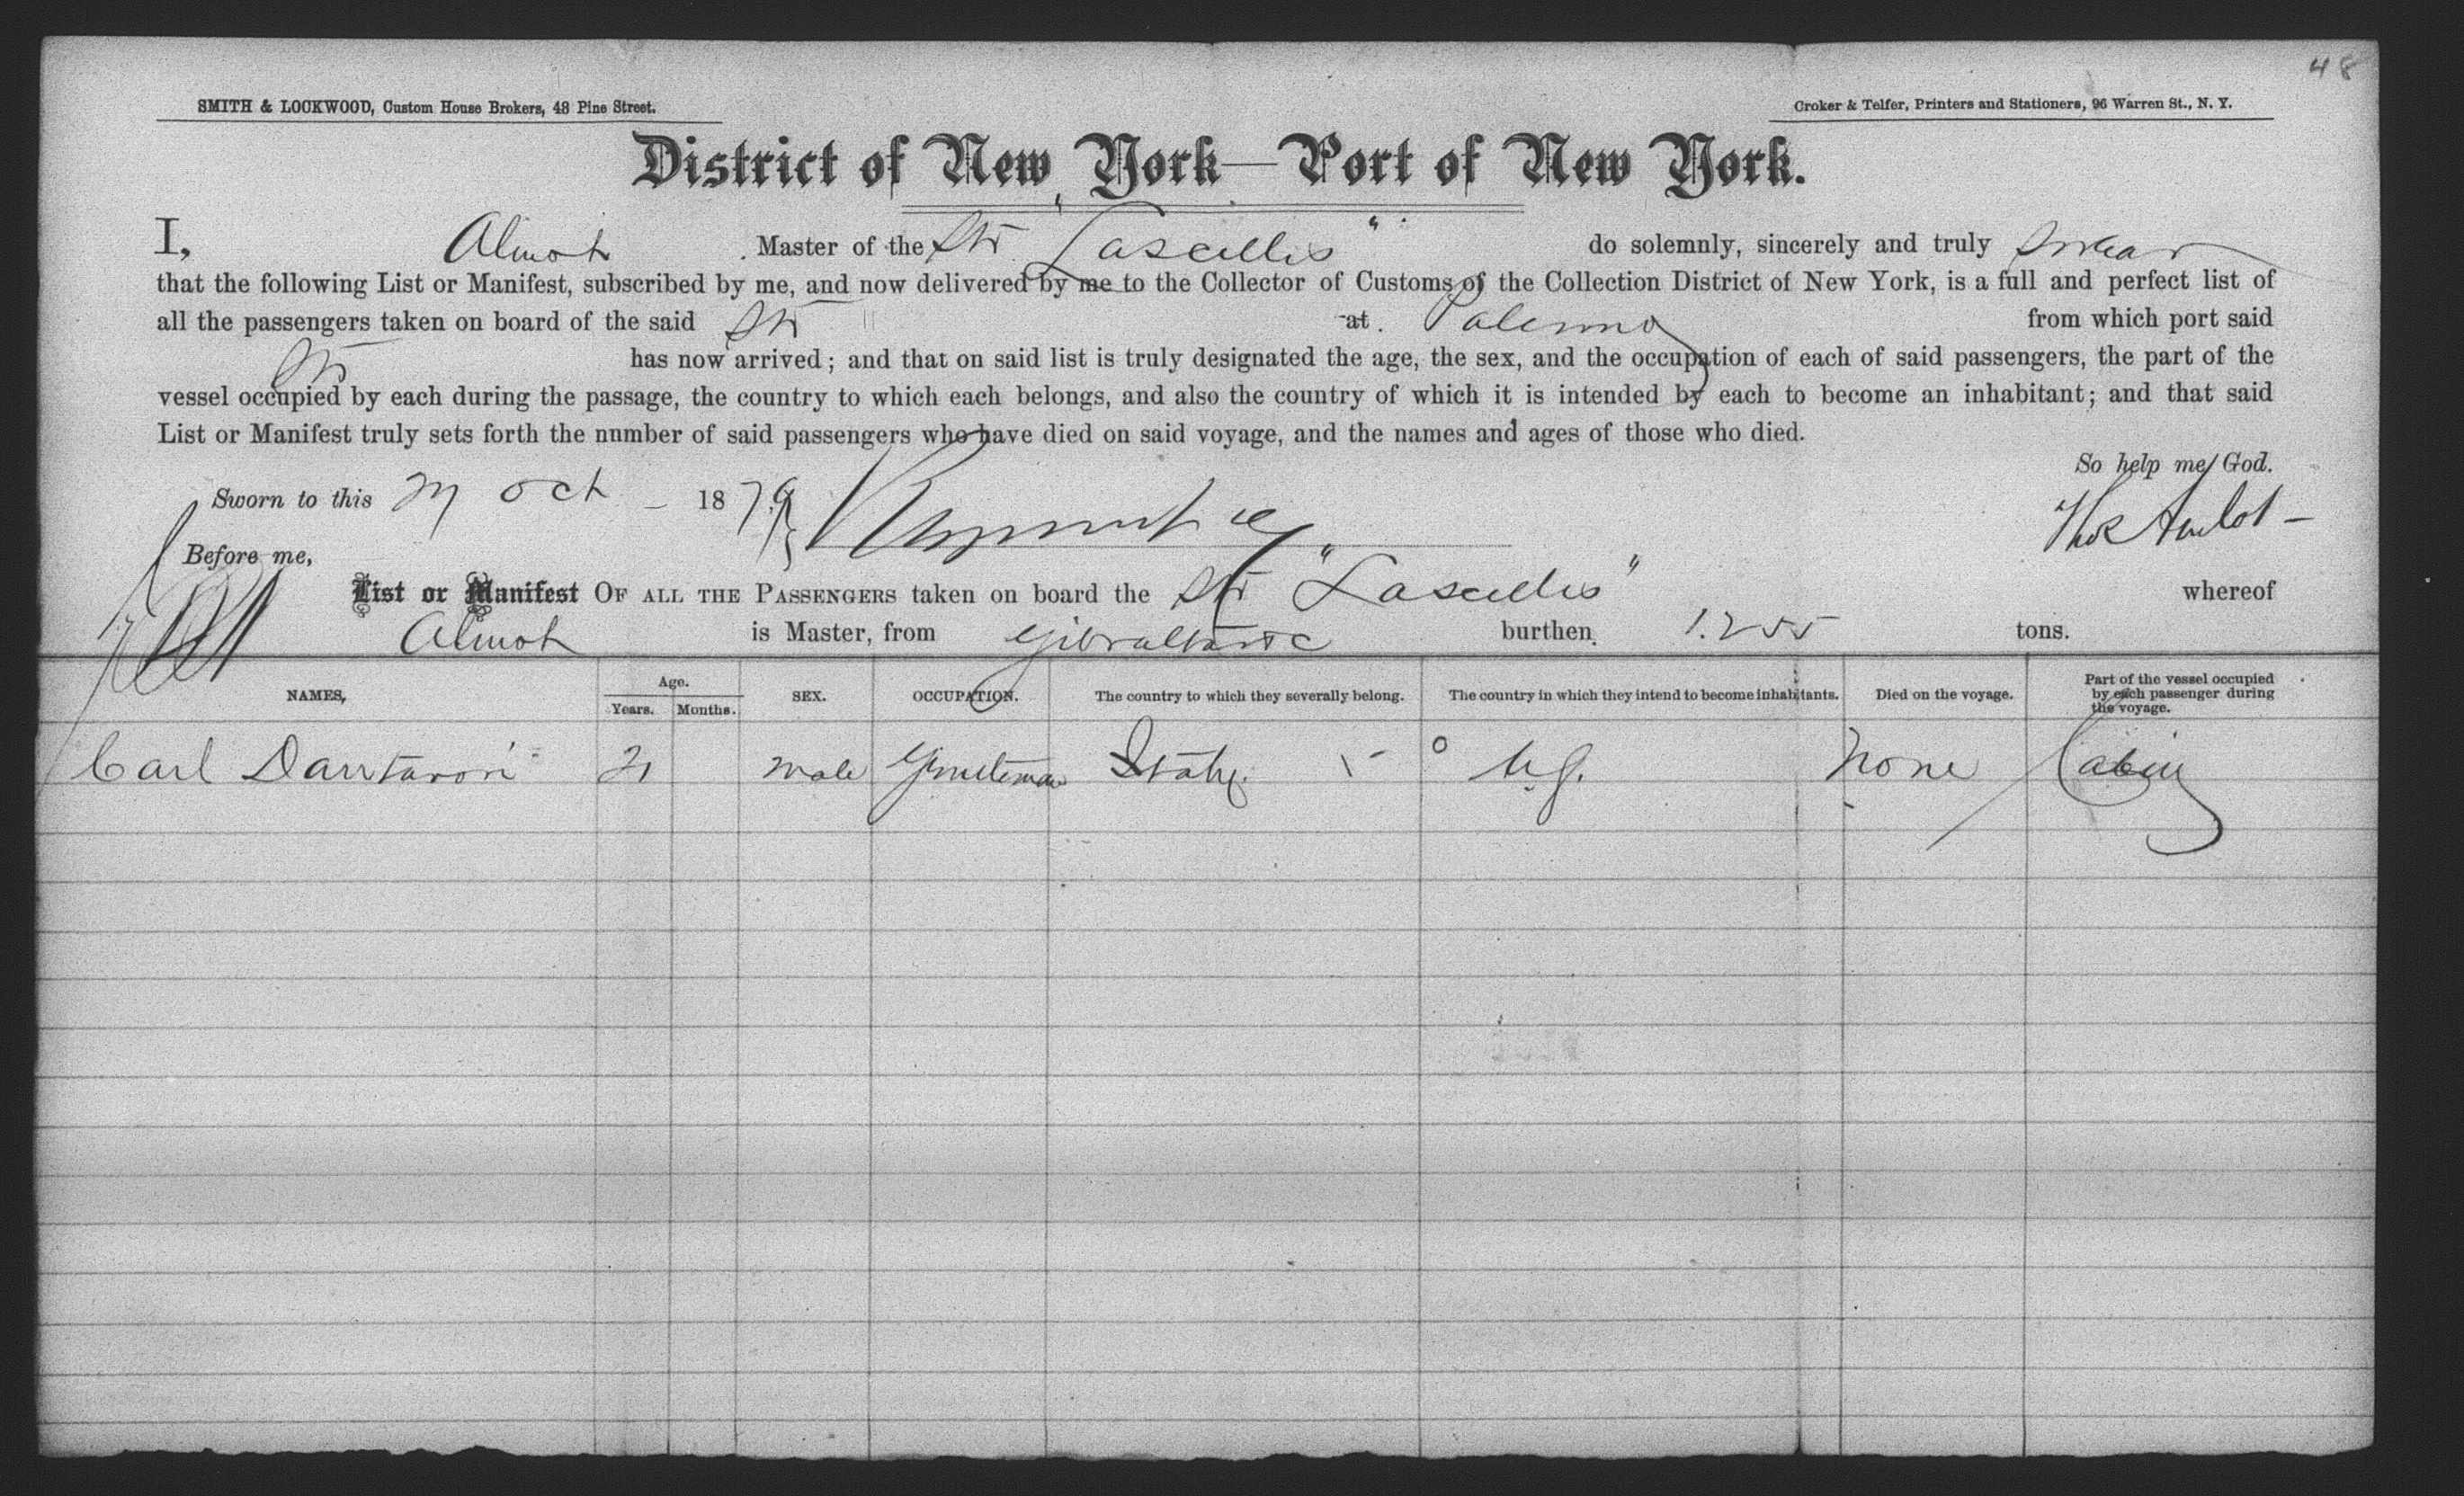 48
SMITH & LOCKWOOD, Custom House Brokers, 48 Pine Street.
Croker & Telfer, Printers and Stationers, 96 Warren St., N. Y.
District of New York—Port of New York.
I, Almot Master of the Str "Lascelles" do solemnly, sincerely and truly swear
that the following List or Manifest, subscribed by me, and now delivered by me to the Collector of Customs of the Collection District of New York, is a full and perfect list of
all the passengers taken on board of the said Str at Palermo from which port said
Str has now arrived; and that on said list is truly designated the age, the sex, and the occupation of each of said passengers, the part of the
vessel occupied by each during the passage, the country to which each belongs, and also the country of which it is intended by each to become an inhabitant; and that said
List or Manifest truly sets forth the number of said passengers who have died on said voyage, and the names and ages of those who died.
So help me God.
Sworn to this 27 Oct 1879
Before me,
List or Manifest OF ALL THE PASSENGERS taken on board the Str "Lascelles" whereof
Almot is Master, from Gibraltar &c burthen 1.255 tons.
NAMES, Age. Years. Months. SEX. OCCUPATION. The country to which they severally belong. The country in which they intend to become inhabitants. Died on the voyage. Part of the vessel occupied by each passenger during the voyage.
Carl 21 male Gentleman Italy None Cabin